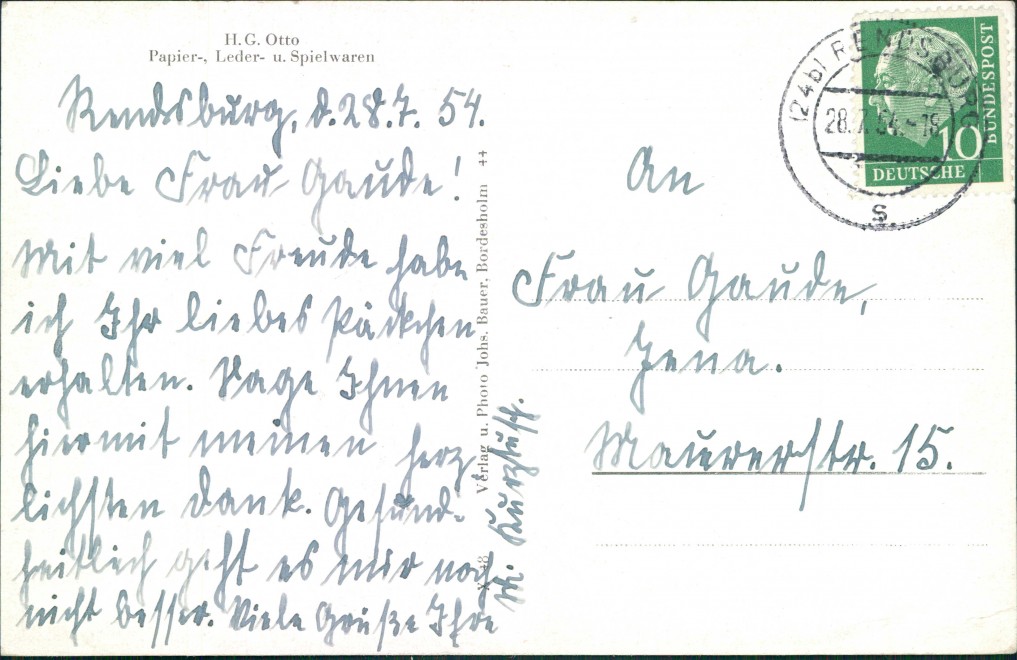 H. G. Otto
Papier-, Leder- u. Spielwaren
Rendsburg, d. 28.7. 54.
Liebe Frau Gaude!
Mit viel Freude habe
ich Ihr liebes Päckchen
erhalten. Sage Ihnen
hiermit meinen herz-
lichsten Dank. Gesund-
heitlich geht es mir noch
nicht besser. Viele Grüße Ihre
Verlag u. Photo Johs. Bauer, Bordesholm 44
An
Frau Gaude,
Jena.
Maurerstr. 15.
(24b) RENDSBURG
28.7.54.-18
S
10
DEUTSCHE
BUNDESPOST